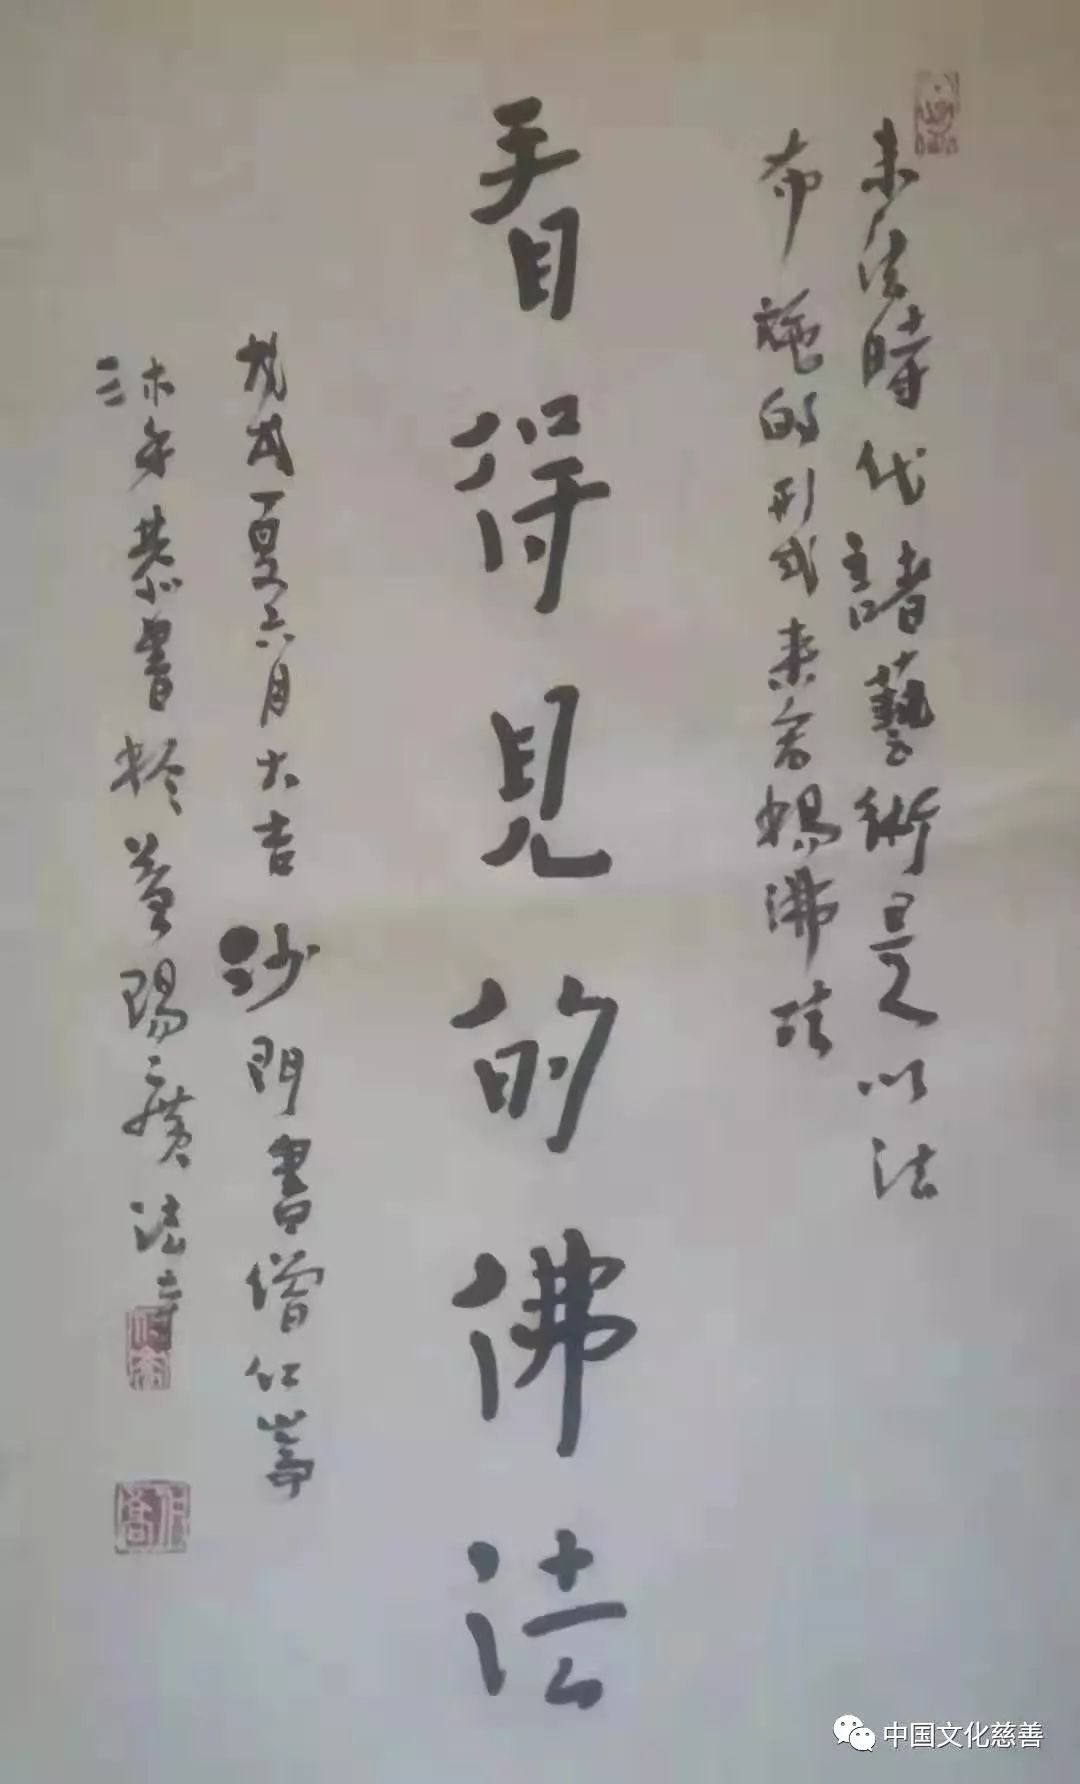 末法時代諸藝術是以法
布施的形式来宣揚佛法
看得見的佛法
戊戌夏六月大吉 沙門書僧仁嵩
沐手恭書於萊陽法
中国文化慈善